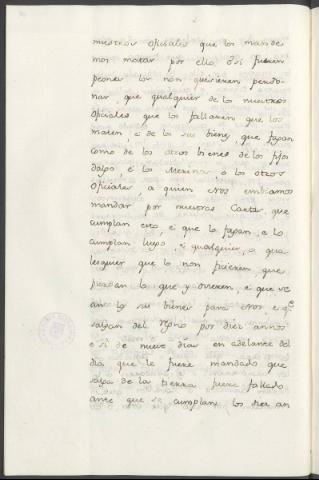 nuestros oficiales que los mande
mos matar por ello. E si fueren
peones los non quisieren perdo-
nar, que qualquier de los nuestros
Oficiales que los fallaren que los
maten, e de los sus bienes, que fagan
como de los otros bienes de los fijos
dalgo, e los Merinos o los otros
Oficiales a quien Nos embiamos
mandar por nuestras Cartas que
cumplan esto, e que lo fagan, e lo
cumplan luego, e qualquier, o qua
lesquier que lo non ficieren, que
pierdan lo que y ovieren, e que se
an los sus bienes para Nos e q.e
salgan del Regno por diez annos
e si de nueve dias en adelante del
dia que le fuere mandado que
salga de la tierra fuere fallado
ante que se cumplan los diez an